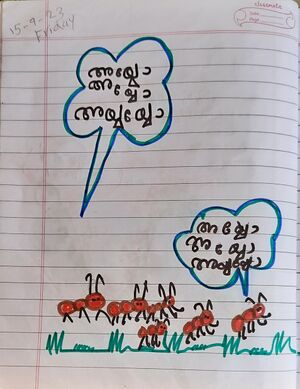 15-9-23
Friday
classmate
Date
Page
അയ്യോ
അയ്യോ
അയ്യയ്യോ
അയ്യോ
അയ്യോ
അയ്യയ്യോ